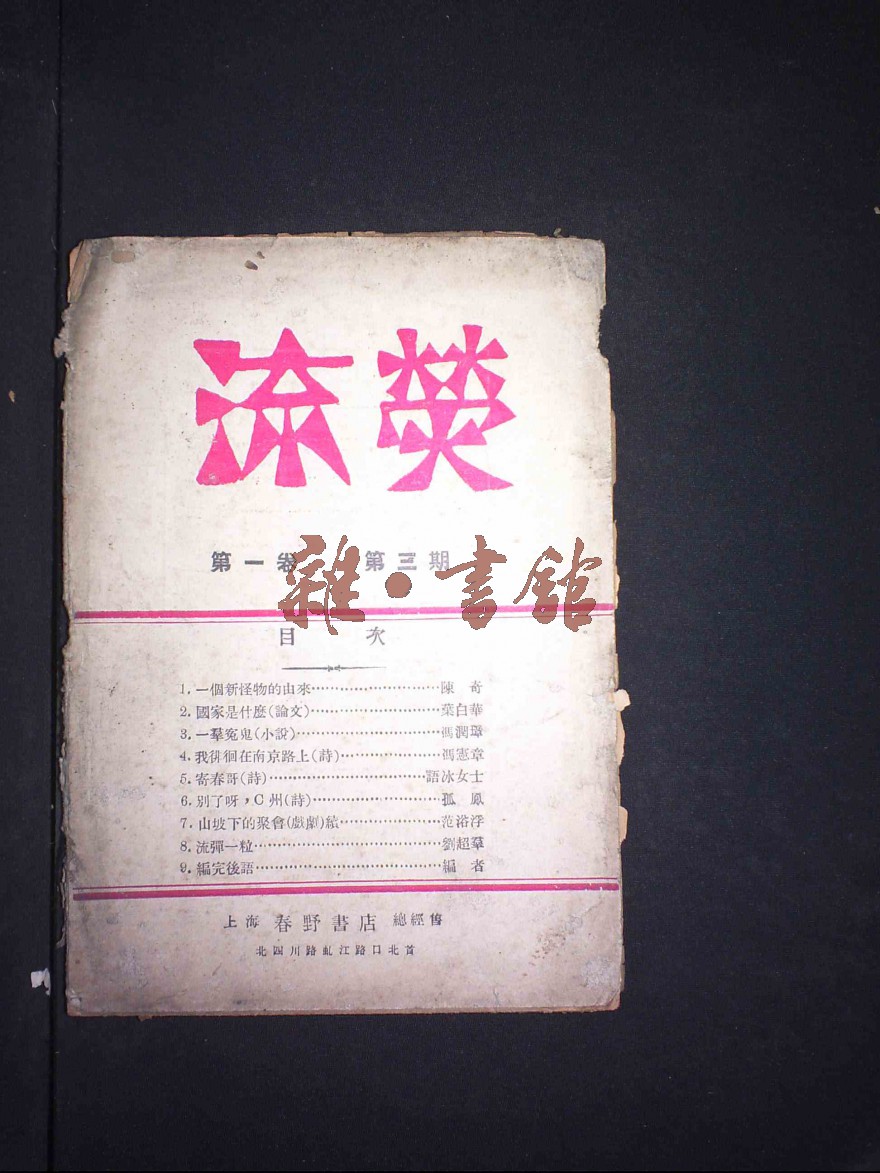 流熒
第一卷 第三期
雜·書館
目 次
1. 一個新怪物的由來…………………………陳 奇
2. 國家是什麽(論文)…………………………葉白華
3. 一羣冤鬼(小說)……………………………馮潤璋
4. 我徘徊在南京路上(詩)……………………馮憲章
5. 寄春哥(詩)…………………………………語冰女士
6. 別了呀，C州(詩)…………………………孤 鳳
7. 山坡下的聚會(戲劇)續……………………范浴浮
8. 流彈一粒……………………………………劉超羣
9. 編完後語……………………………………編 者
上海 春野書店 總經售
北四川路虬江路口北首